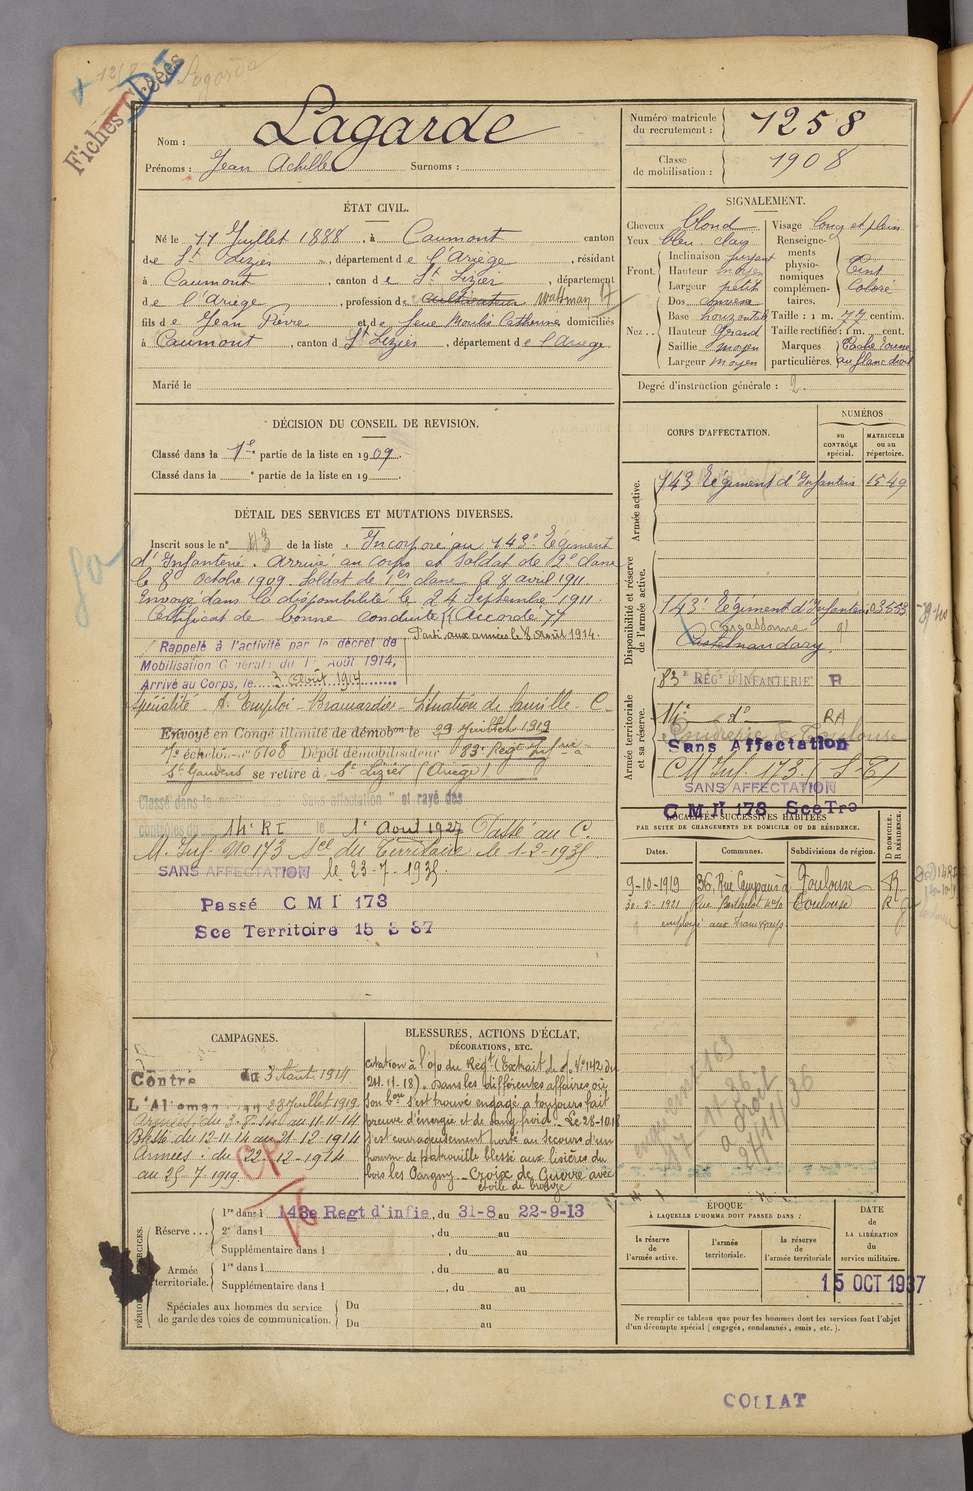 Fiches Créées
Lagarde
Nom : Lagarde
Prénoms : Jean Achille Surnoms :
Numéro matricule du recrutement : 1258
Classe de mobilisation : 1908
ÉTAT CIVIL.
Né le 11 Juillet 1888, à Caumont canton
de St Lizier, département de l'Ariège, résidant
à Caumont, canton de St Lizier, département
de l'Ariège, profession de cultivateur Wattman
fils de Jean Pierre et de Jeue Moulis Catherine domiciliés
à Caumont, canton d St Lizier, département de l'Ariège
Marié le
SIGNALEMENT.
Cheveux blond
Yeux bleu clair
Front. Inclinaison fuyant
Hauteur moyen
Largeur petit
Nez.. Dos convexe
Base horizontale
Hauteur Grand
Saillie moyen
Largeur moyen
Visage long et plein
Renseignements physionomiques complémentaires. Teint Coloré
Taille : 1 m. 77 centim.
Taille rectifiée : 1 m. cent.
Marques particulières. Tache brune au flanc droit
Degré d'instruction générale : 2
DÉCISION DU CONSEIL DE REVISION.
Classé dans la 1e partie de la liste en 1909.
Classé dans la e partie de la liste en 19
CORPS D'AFFECTATION.
NUMÉROS
au CONTRÔLE spécial.
MATRICULE ou au répertoire.
Armée active.
143 Régiment d'Infanterie 1549
Disponibilité et réserve de l'armée active.
143e Régiment d'Infanterie 03553
Carcassonne
Castelnaudary
Armée territoriale et sa réserve.
83e RÉGt D'INFANTERIE R
14e do RA
Poudrerie de Toulouse
Sans Affectation
CM Inf. 173 (S-T)
SANS AFFECTATION
C M I 173 Sce Tro
DÉTAIL DES SERVICES ET MUTATIONS DIVERSES.
Inscrit sous le n° 43 de la liste. Incorporé au 143e Régiment
d'Infanterie. Arrivé au corps et soldat de 2e classe
le 8 octobre 1909. Soldat de 1ere classe le 8 avril 1911
Envoyé dans la disponibilité le 24 Septembre 1911.
Certificat de bonne conduite "Accordé"
Parti aux armées le 8 Août 1914.
Rappelé à l'activité par le décret de
Mobilisation Générale du 1er Août 1914,
Arrivé au Corps, le 3 Août 1914
Spécialité A. Emploi Brancardier Situation de famille C
Envoyé en Congé illimité de démobon le 29 Juillet 1919
7e échelon n° 6108 Dépôt démobilisateur 83e Régt Infrie à
St Gaudens se retire à St Lizier (Ariège)
Classé dans la position dite "Sans affectation" et rayé des
contrôles du 14e RI le 1er Août 1927 Passé au C.
M. Inf. No 173 Sce du Territoire le 1-2-1935
SANS AFFECTATION le 23-7-1935
Passé C M I 173
Sce Territoire 15 3 37
LOCALITÉS SUCCESSIVES HABITÉES
PAR SUITE DE CHANGEMENTS DE DOMICILE OU DE RÉSIDENCE.
Dates. Communes. Subdivisions de région. D DOMICILE. R RÉSIDENCE.
9-10-1919 36, Rue Compans à Toulouse R
30-5-1921 Rue Berthelot Toulouse R
employé aux Tramways
CAMPAGNES.
Contre du 3 Août 1914
L'Allemagne au 28 Juillet 1919
Armées : du 3-8-14 au 11-11-14
Blessé du 12-11-14 au 21-12-1914
Armées : du 22-12-1914
au 25-7-1919
BLESSURES, ACTIONS D'ÉCLAT,
DÉCORATIONS, ETC.
Citation à l'o/o du Régt (Extrait de o. No 142 du
24-11-18). Dans les différentes affaires où
son bon s'est trouvé engagé a toujours fait
preuve d'énergie et de sang froid. Le 28-10-18
s'est courageusement porté au secours d'un
homme de patrouille blessé aux lisières du
bois les Pargny. Croix de Guerre avec
étoile de bronze
PÉRIODES D'EXERCICES.
Réserve... 1re dans l 143e Regt d'infie, du 31-8 au 22-9-13
2e dans l , du au
Supplémentaire dans l , du au
Armée territoriale. 1re dans l , du au
Supplémentaire dans l , du au
Spéciales aux hommes du service de garde des voies de communication. Du au
Du au
ÉPOQUE
À LAQUELLE L'HOMME DOIT PASSER DANS :
la réserve de l'armée active.
l'armée territoriale.
la réserve de l'armée territoriale
DATE DE LA LIBÉRATION du service militaire.
15 OCT 1937
Ne remplir ce tableau que pour les hommes dont les services font l'objet
d'un décompte spécial (engagés, condamnés, omis, etc.).
COLLAT